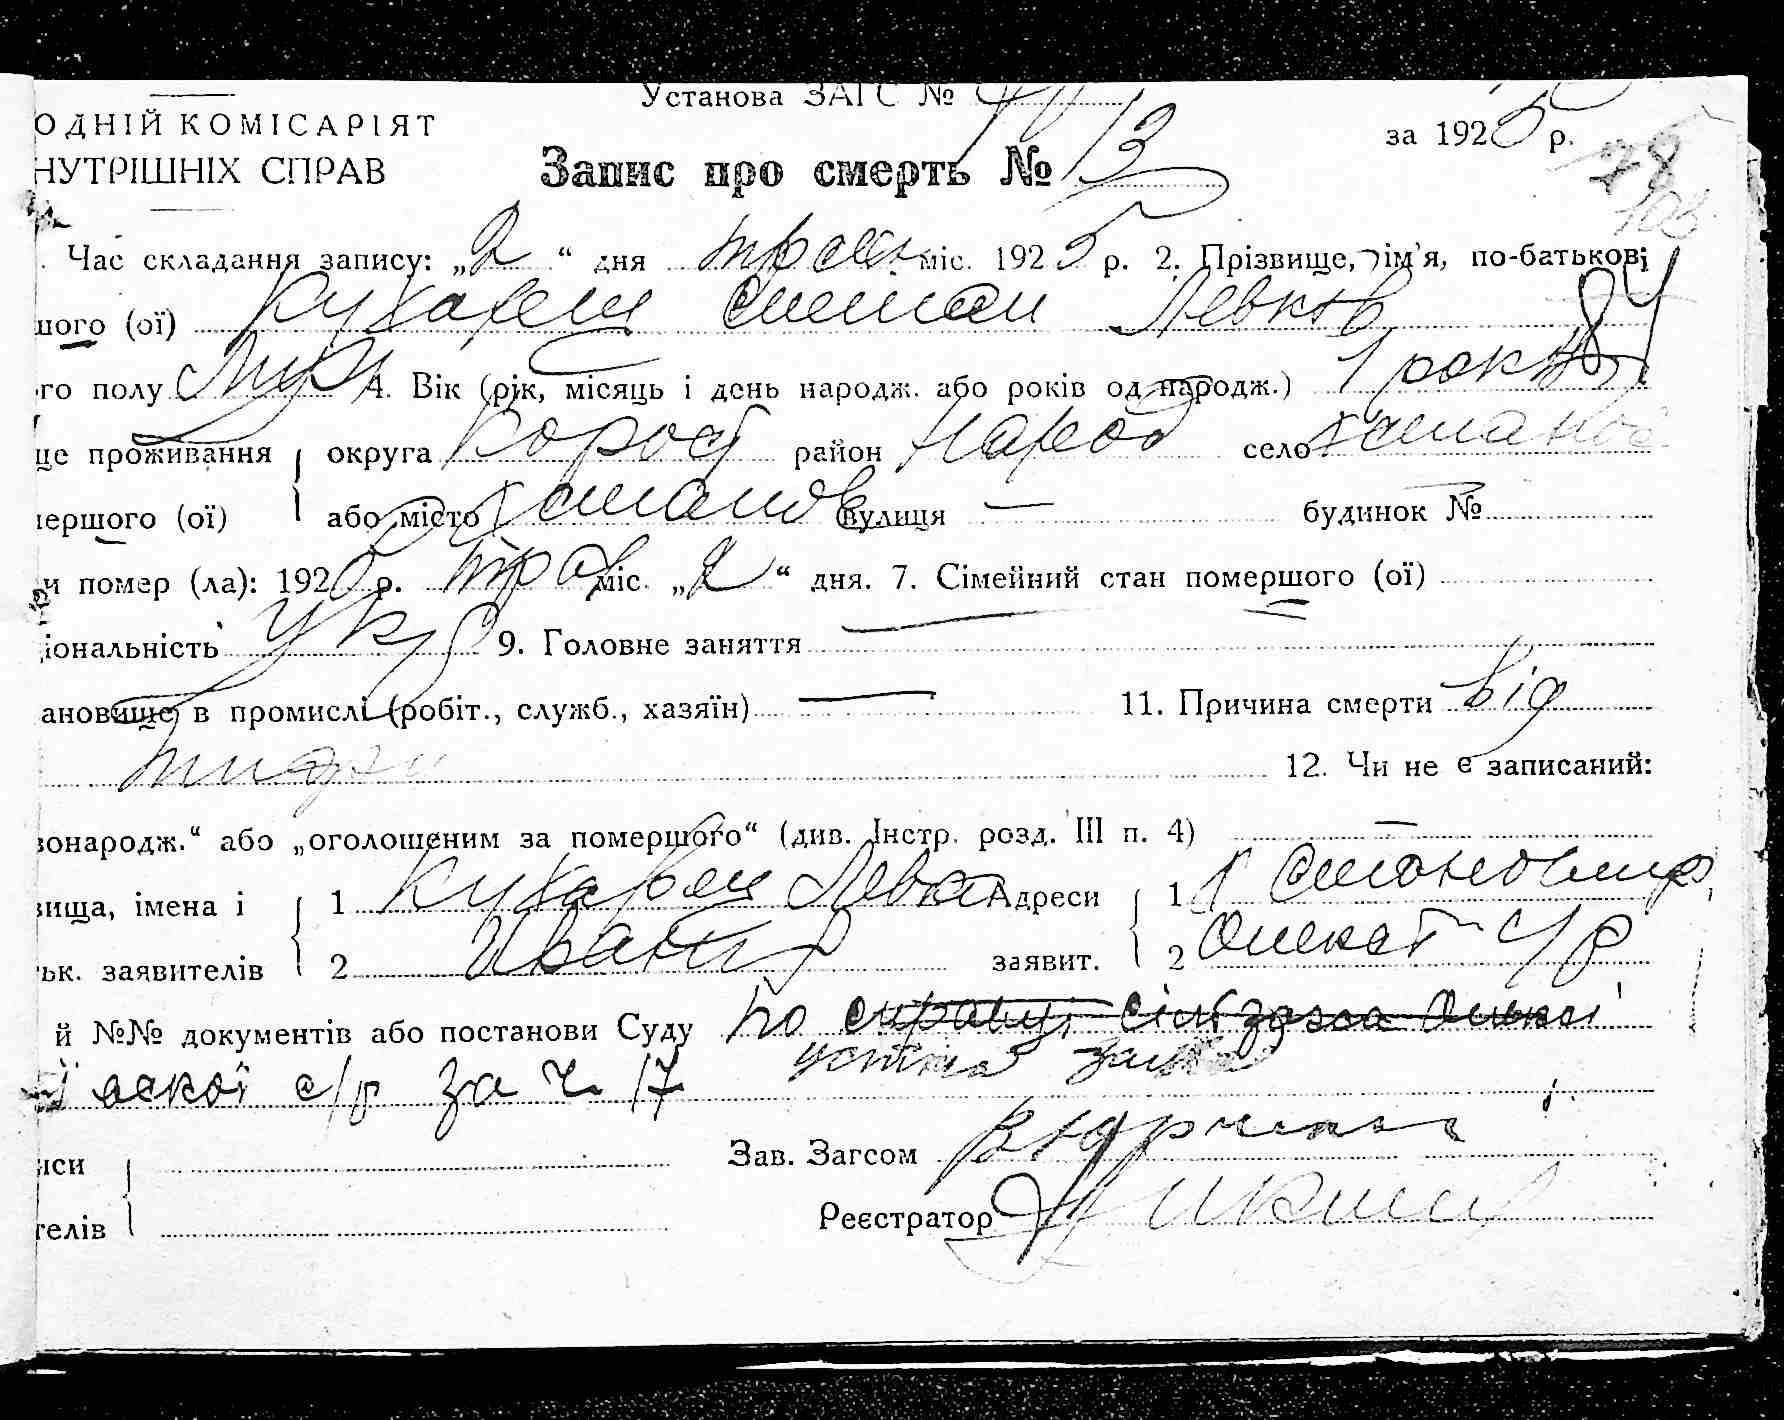 Установа ЗАГС №
ОДНІЙ КОМІСАРІЯТ
за 1925 р.
НУТРІШНІХ СПРАВ
Запис про смерть № 13
78
103
Час складання запису: „2“ дня трав міс. 1925 р. 2. Прізвище, ім’я, по-батькові
шого (ої) Кухарець Степан Левків
84
го полу Муж 4. Вік (рік, місяць і день народж. або років од народж.) 1 рок
це проживання округа Корост район Народ село
мершого (ої) або місто вулиця — будинок №
и помер (ла): 1925 р. трав міс. „2“ дня. 7. Сімейний стан помершого (ої)
іональність Укр 9. Головне заняття —
ановище в промислі (робіт., служб., хазяїн) — 11. Причина смерти від
12. Чи не є записаний:
вонародж.“ або „оголошеним за помершого“ (див. Інстр. розд. III п. 4) —
вища, імена і 1 Кухарец Левко Адреси 1
ьк. заявителів 2 Иванів заявит. 2 с/р
й №№ документів або постанови Суду по
устна заява
ської с/р за ч. 17
иси Зав. Загсом
телів Реєстратор